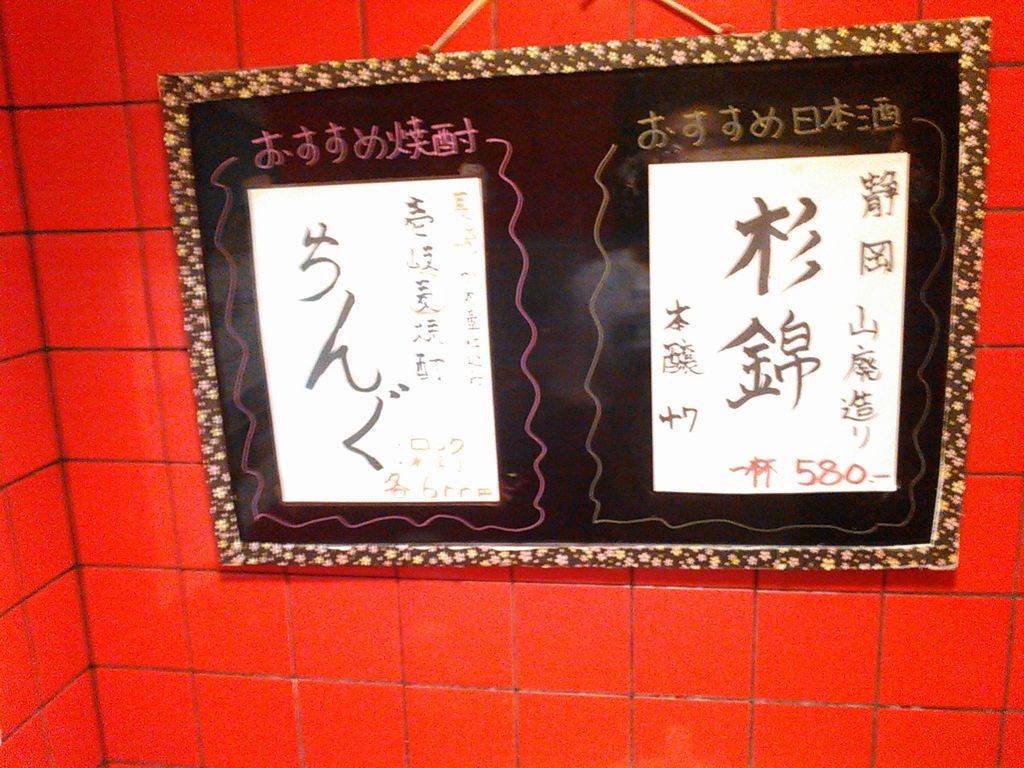 おすすめ焼酎
壱岐麦焼酎
ちんぐ
ロック
各
おすすめ日本酒
静岡 山廃造り
杉錦
本醸
一杯 580.-